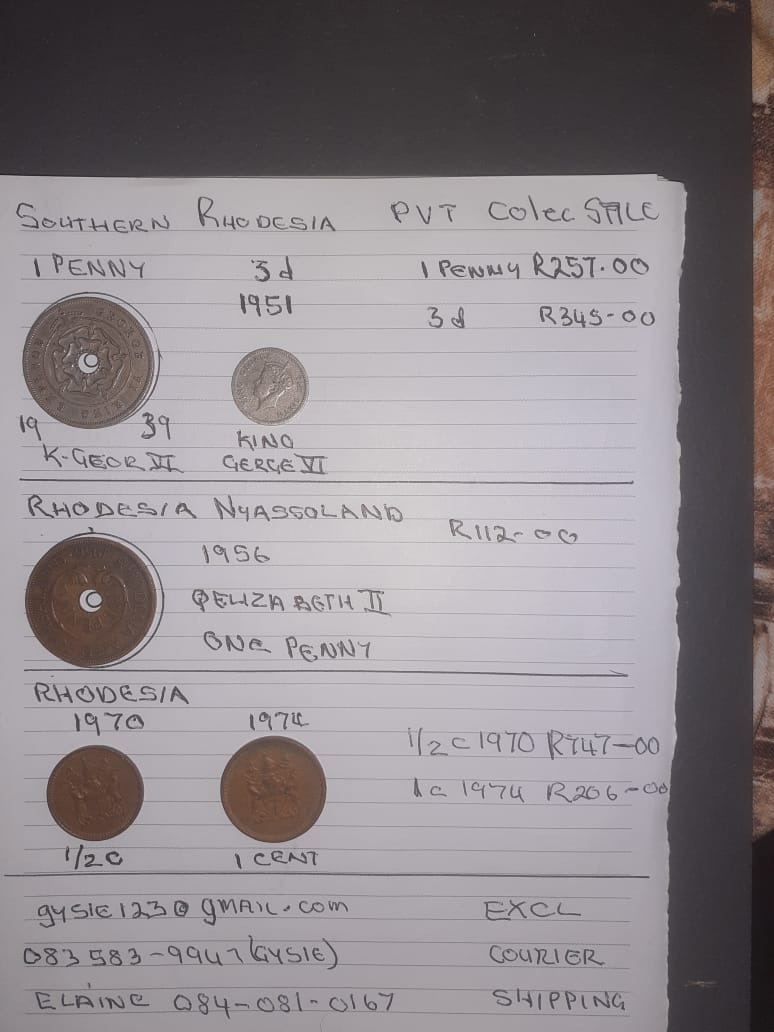 SOUTHERN RHODESIA PVT COLEC SALE
1 PENNY 3d 1 PENNY R257.00
1951
3d R345-00
19 39 KING
K-GEOR VI GERGE VI
RHODESIA NYASSOLAND
R112-00
1956
QELIZABETH II
ONE PENNY
RHODESIA
1970 1974
1/2c 1970 R747-00
1c 1974 R206-00
1/2c 1 CENT
gysie123@gmail.com EXCL
083 583-9947 (GYSIE) COURIER
ELAINE 084-081-0167 SHIPPING